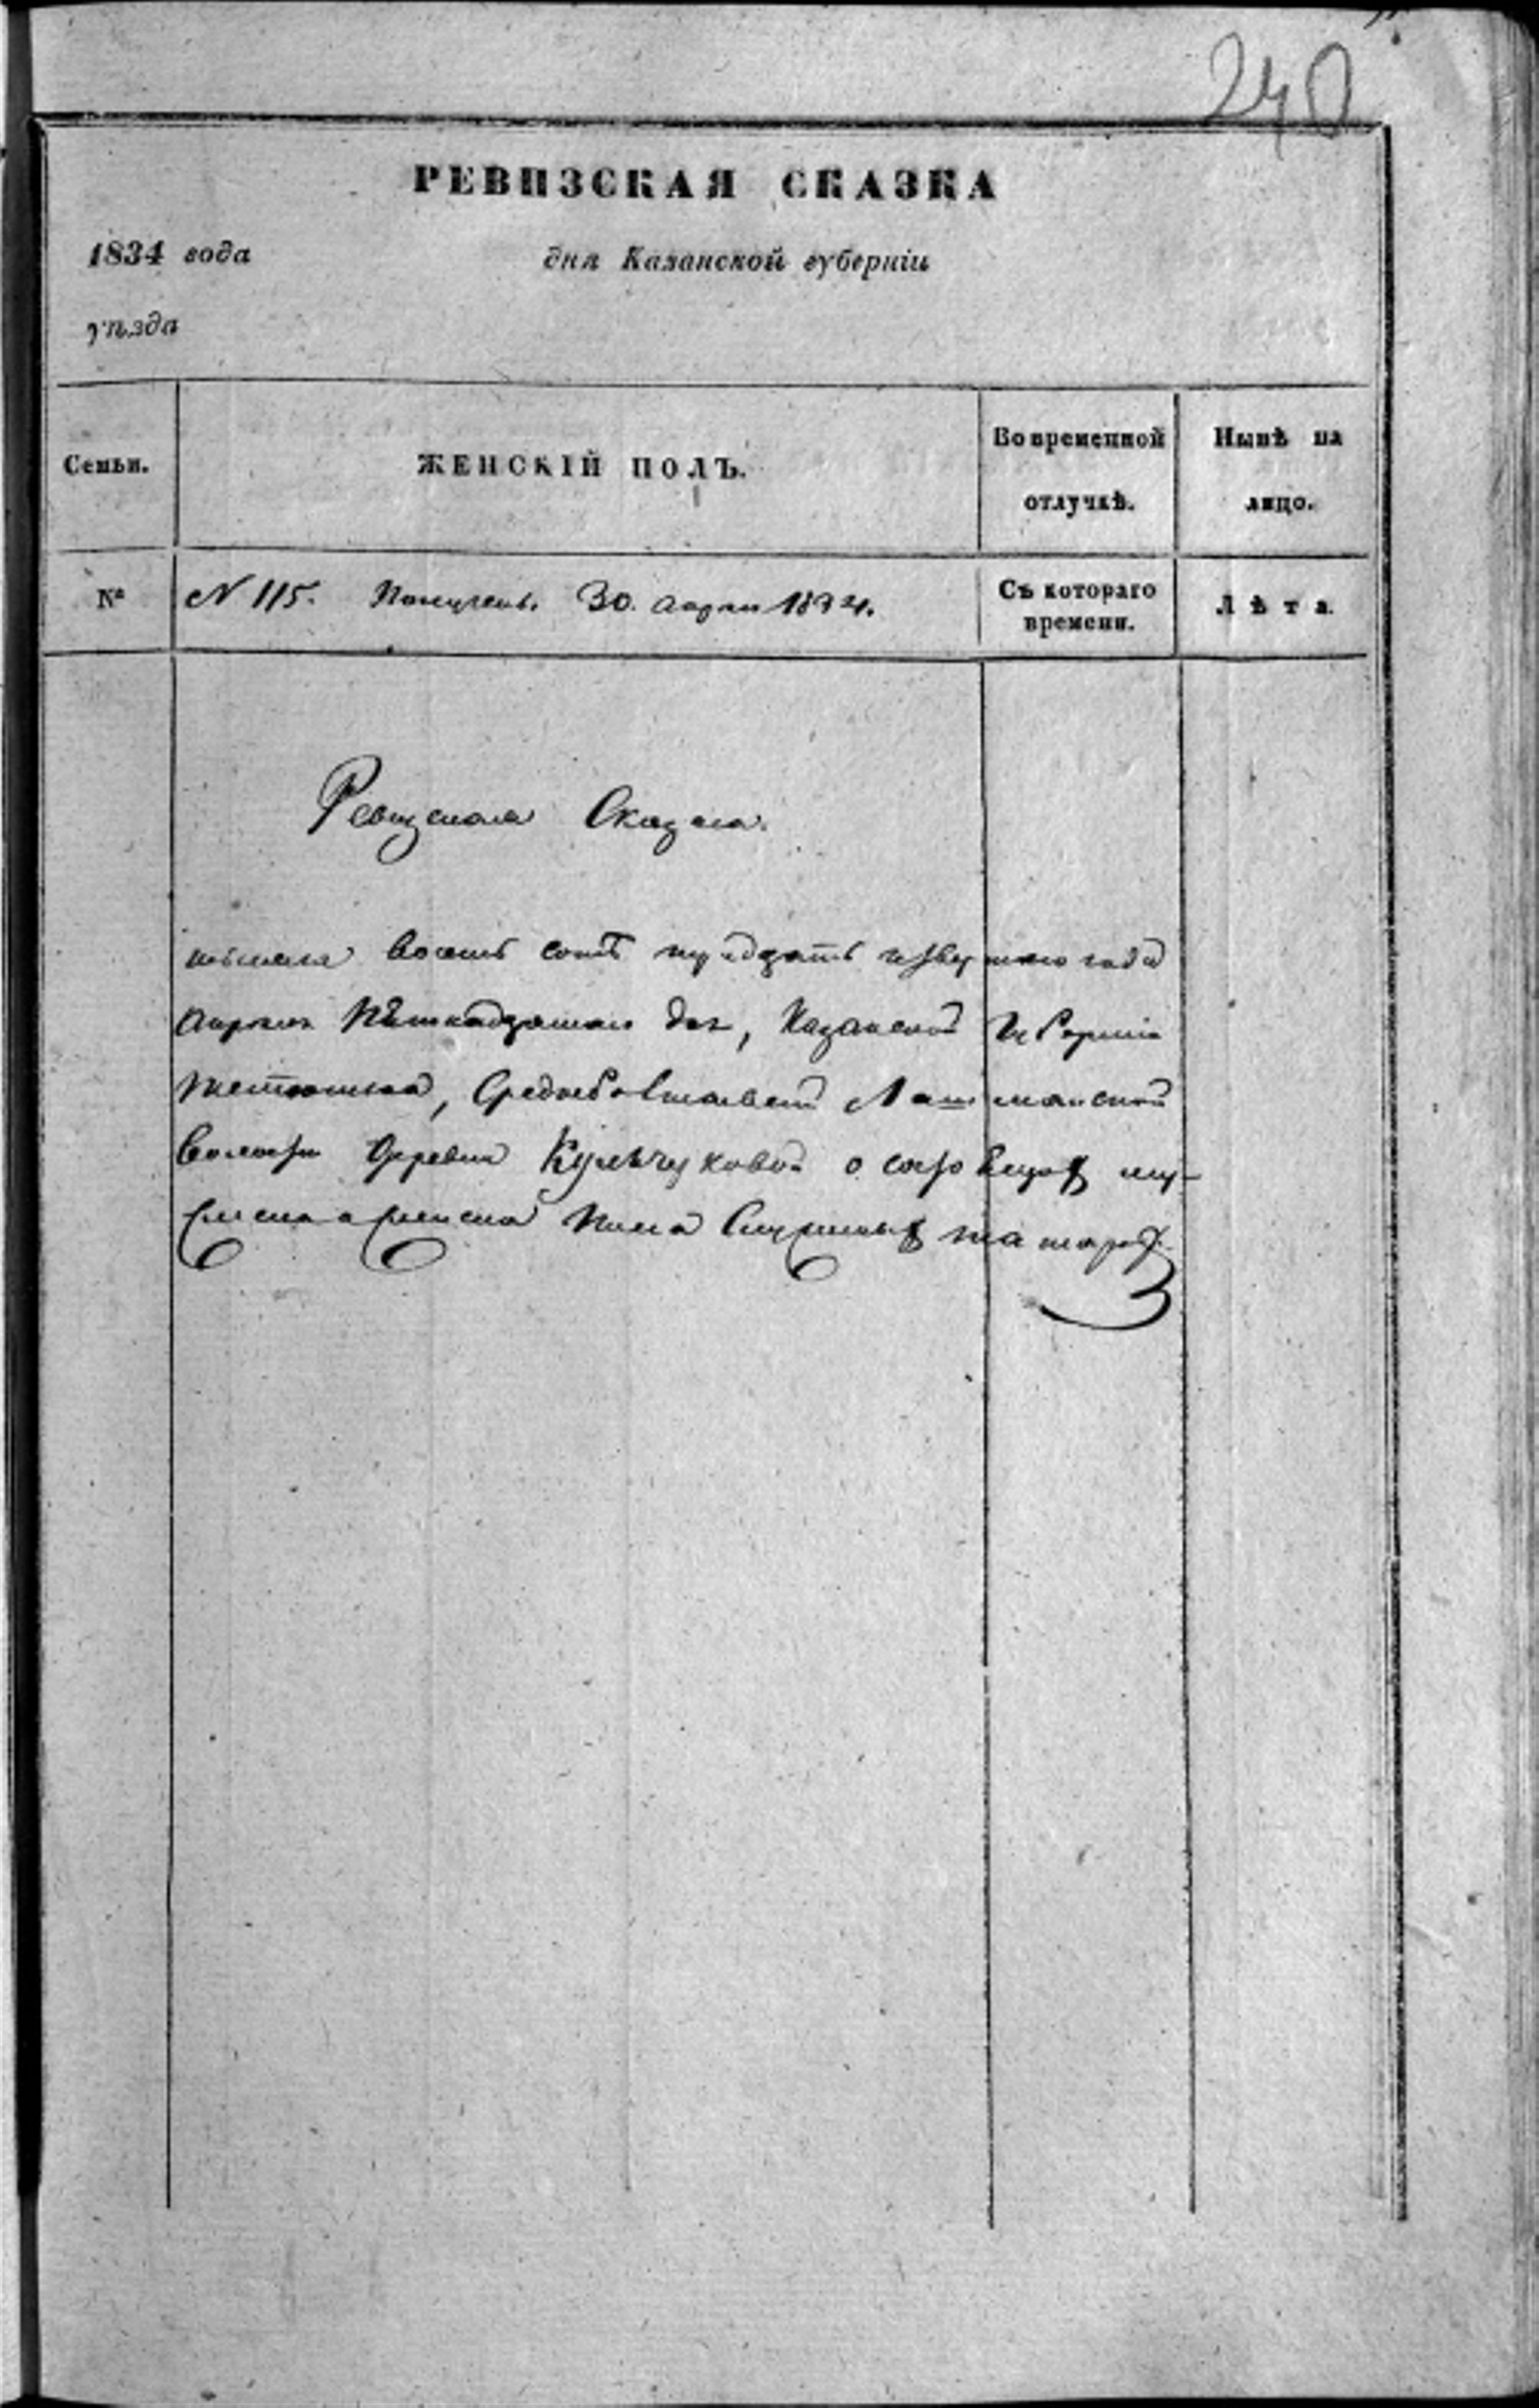 240
РЕВИЗСКАЯ СКАЗКА
1834 года дня Казанской губерніи
уѣзда
Семьи. ЖЕНСКІЙ ПОЛЪ. Во временной отлучкѣ. Нынѣ на лицо.
№ N 115. Получено. 30. апреля 1834. Съ котораго времени. Лѣта.
Ревизская Сказка.
тысяча восемь сотъ тридцать четвертаго года
Апреля Пятнадцатаго дня, Казанской Губерніи
Лашманской
волости деревни Кульчуковой о состоящихъ му-
жеска и женска пола Служилыхъ татарахъ